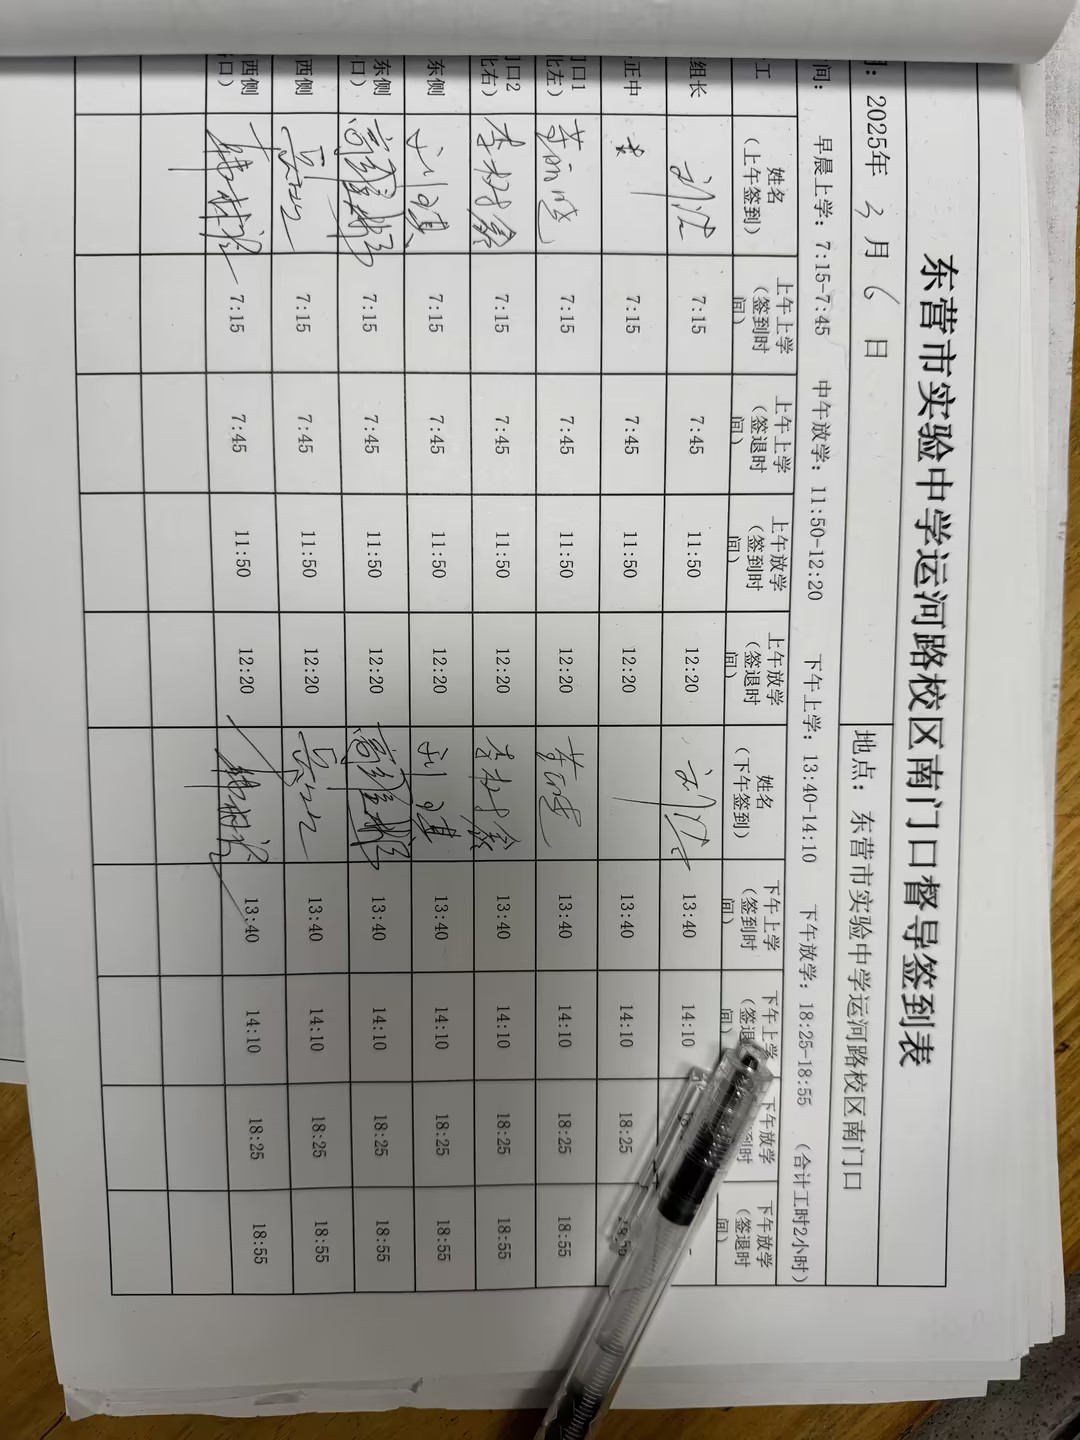 东营市实验中学运河路校区南门口督导签到表
: 2025年 3 月 6 日 地点: 东营市实验中学运河路校区南门口
间: 早晨上学: 7:15-7:45 中午放学: 11:50-12:20 下午上学: 13:40-14:10 下午放学: 18:25-18:55 (合计工时2小时)
工 姓名(上午签到) 上午上学(签到时间) 上午上学(签退时间) 上午放学(签到时间) 上午放学(签退时间) 姓名(下午签到) 下午上学(签到时间) 下午上学(签退 间) 下午放学 到时 下午放学(签退时间)
组长 7:15 7:45 11:50 12:20 13:40 14:10
正中 7:15 7:45 11:50 12:20 13:40 14:10 18:25
门口1 左) 7:15 7:45 11:50 12:20 13:40 14:10 18:25 18:55
门口2 右) 李树鑫 7:15 7:45 11:50 12:20 李树鑫 13:40 14:10 18:25 18:55
东侧 7:15 7:45 11:50 12:20 13:40 14:10 18:25 18:55
东侧 口) 7:15 7:45 11:50 12:20 13:40 14:10 18:25 18:55
西侧 7:15 7:45 11:50 12:20 13:40 14:10 18:25 18:55
西侧 口) 7:15 7:45 11:50 12:20 13:40 14:10 18:25 18:55